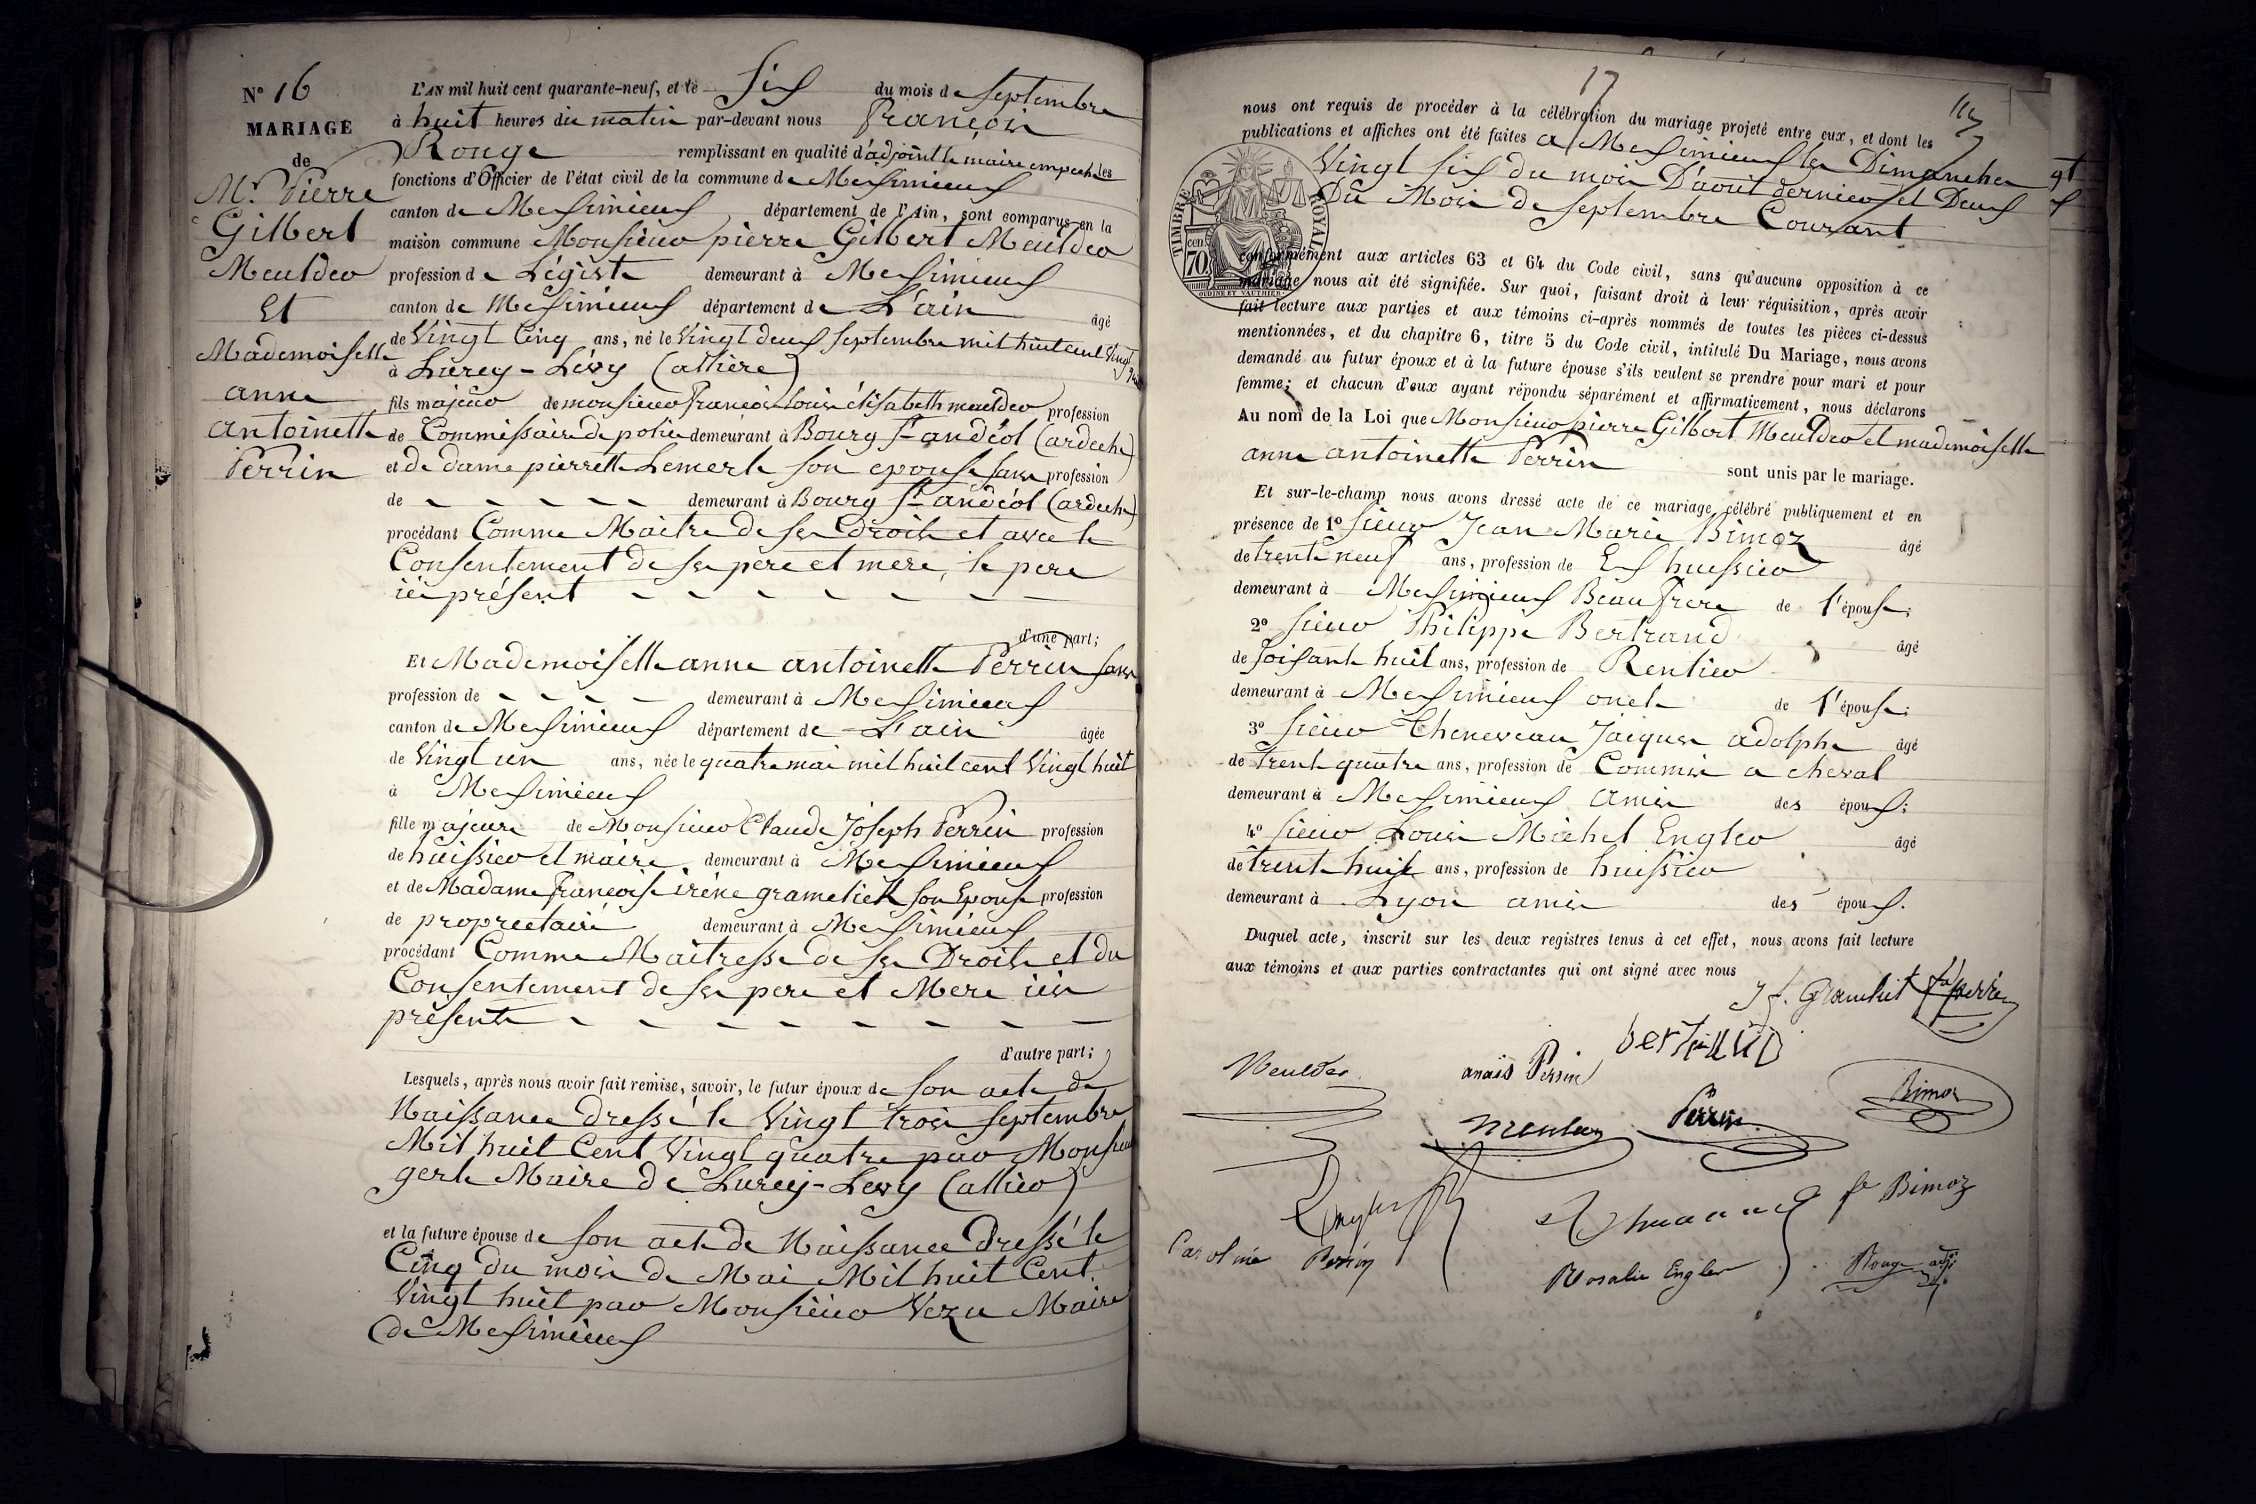 N° 16
MARIAGE
de
Mr. Pierre
Gilbert
Meulder
Et
Mademoiselle
anne
antoinette
Perrin
L'AN mil huit cent quarante-neuf, et le Six du mois de Septembre
à huit heures du matin par-devant nous François
Rouge remplissant en qualité d'adjoint le maire empeché les
fonctions d'Officier de l'état civil de la commune de Meximieux
canton de Meximieux département de l'Ain, sont comparus en la
maison commune Monsieur pierre Gilbert Meulder
profession de Légiste demeurant à Meximieux
canton de Meximieux département de L'ain âgé
de Vingt Cinq ans, né le Vingt deux Septembre mil huit cent Vingt
à Lurcy-Lévy (allière)
fils majeur de monsieur François Louis élisabeth meulder profession
de Commissaire de police demeurant à Bourg St andéol (ardeche)
et de dame pierrette Lemerle son epouse sans profession
de demeurant à Bourg St andéol (ardeche)
procédant Comme Maitre de ses Droits et avec le
Consentement de ses pere et mere, le pere
ici présent
d'une part;
Et Mademoiselle anne antoinette Perrin sans
profession de demeurant à Meximieux
canton de Meximieux département de L'ain âgée
de Vingt un ans, née le quatre mai mil huit cent Vingt huit
à Meximieux
fille majeure de Monsieur Claude Joseph Perrin profession
de huissier et maire demeurant à Meximieux
et de Madame Françoise irène gramelick son Epouse profession
de proprietaire demeurant à Meximieux
procédant Comme Maitresse de ses Droits et du
Consentement de ses pere et Mere ici
présents
d'autre part;
Lesquels, après nous avoir fait remise, savoir, le futur époux de son acte de
Naissance dressé le Vingt trois Septembre
Mil huit Cent Vingt quatre par Monsieur
gerle Maire de Lurcy-Levy (allier)
et la future épouse de son acte de Naissance dressé le
Cinq du mois de Mai Mil huit Cent
Vingt huit par Monsieur Vezu Maire
de Meximieux
17
nous ont requis de procéder à la célébration du mariage projeté entre eux, et dont les
publications et affiches ont été faites a Meximieux les Dimanches
Vingt six du mois D'août dernier et Deux
Du Mois de Septembre Courant
TIMBRE ROYAL
70 cen
OUDINE ET VAUTHIER
conformément aux articles 63 et 64 du Code civil, sans qu'aucune opposition à ce
mariage nous ait été signifiée. Sur quoi, faisant droit à leur réquisition, après avoir
fait lecture aux parties et aux témoins ci-après nommés de toutes les pièces ci-dessus
mentionnées, et du chapitre 6, titre 5 du Code civil, intitulé Du Mariage, nous avons
demandé au futur époux et à la future épouse s'ils veulent se prendre pour mari et pour
femme; et chacun d'eux ayant répondu séparément et affirmativement, nous déclarons
Au nom de la Loi que Monsieur pierre Gilbert Meulder et mademoiselle
anne antoinette Perrin sont unis par le mariage.
Et sur-le-champ nous avons dressé acte de ce mariage célébré publiquement et en
présence de 1° Sieur Jean Marie Bimoz âgé
de trente neuf ans, profession de Ex huissier
demeurant à Meximieux Beau frere de l'épouse;
2° Sieur Philippe Bertrand âgé
de Soisante huit ans, profession de Rentier
demeurant à Meximieux oncle de l'épouse;
3° Sieur Cheneveau Jacques adolphe âgé
de trente quatre ans, profession de Commis a cheval
demeurant à Meximieux amis des époux;
4° Sieur Louis Michel Engler âgé
de trente huit ans, profession de huissier
demeurant à Lyon amis des époux.
Duquel acte, inscrit sur les deux registres tenus à cet effet, nous avons fait lecture
aux témoins et aux parties contractantes qui ont signé avec nous
bertrand
Meulder anaïs Perrin Bimoz
Meulder Perrin
Engler fe Bimoz
Caroline Perrin Rosalie Engler Rouge adj